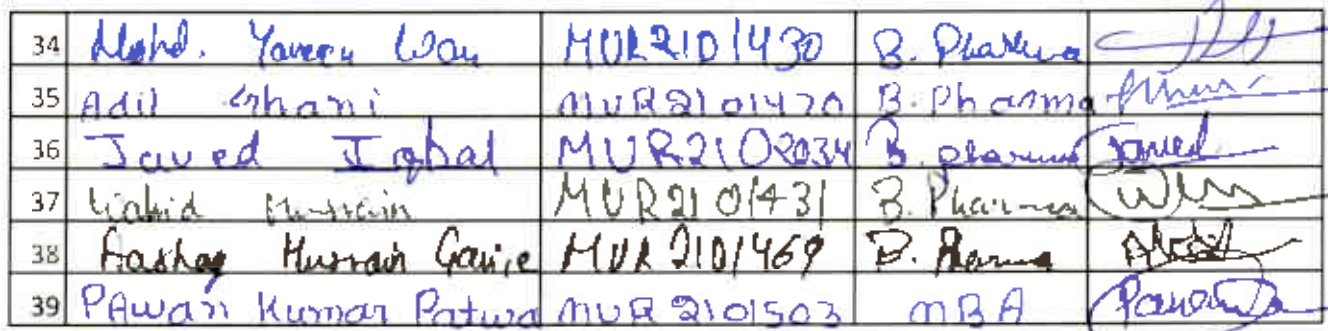 34 Mohd. Yaseen Wani MUR2101430 B. Pharma
35 Adil Ghani MUR2101470 B. Pharma
36 Javed Iqbal MUR2102034 B. pharma Javed
37 Wahid Hussain MUR2101431 B. Pharma
38 Aashaq Hussain Ganie MUR2101469 B. Pharma
39 PAwan Kumar Patwa MUR2101503 MBA Pawan